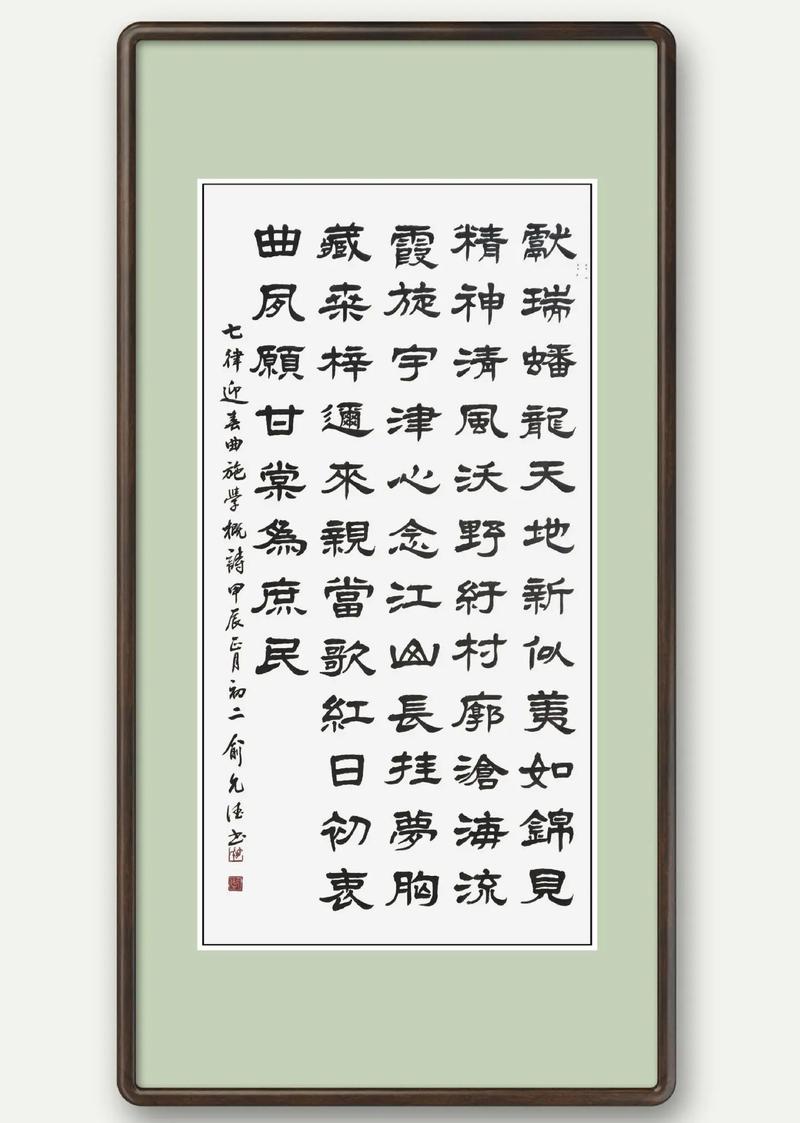 獻瑞蟠龍天地新似荑如錦見
精神清風沃野紆村廓滄海流
霞旋宇津心念江山長挂夢胸
藏桒梓邇來親當歌紅日初衷
曲夙願甘棠為庶民
七律迎春曲施學概詩甲辰正月初二俞允德书